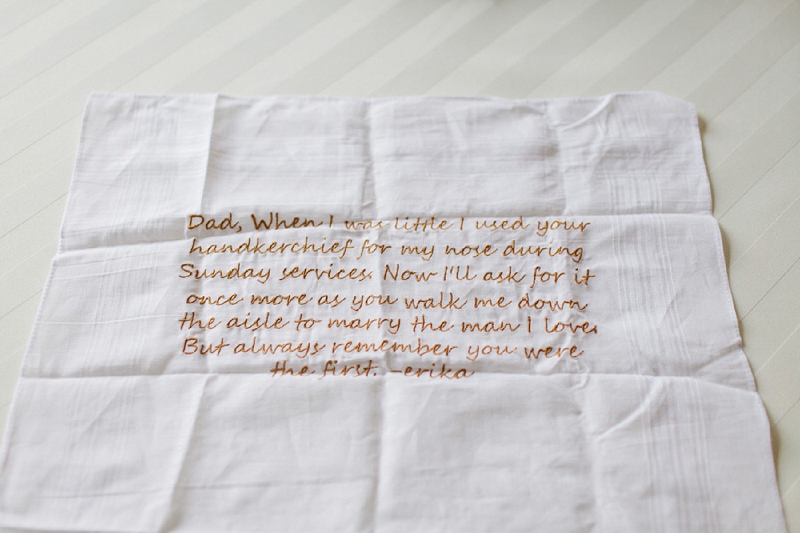 Dad, When I was little I used your
handkerchief for my nose during
Sunday services. Now I'll ask for it
once more as you walk me down
the aisle to marry the man I love.
But always remember you were
the first. -erika